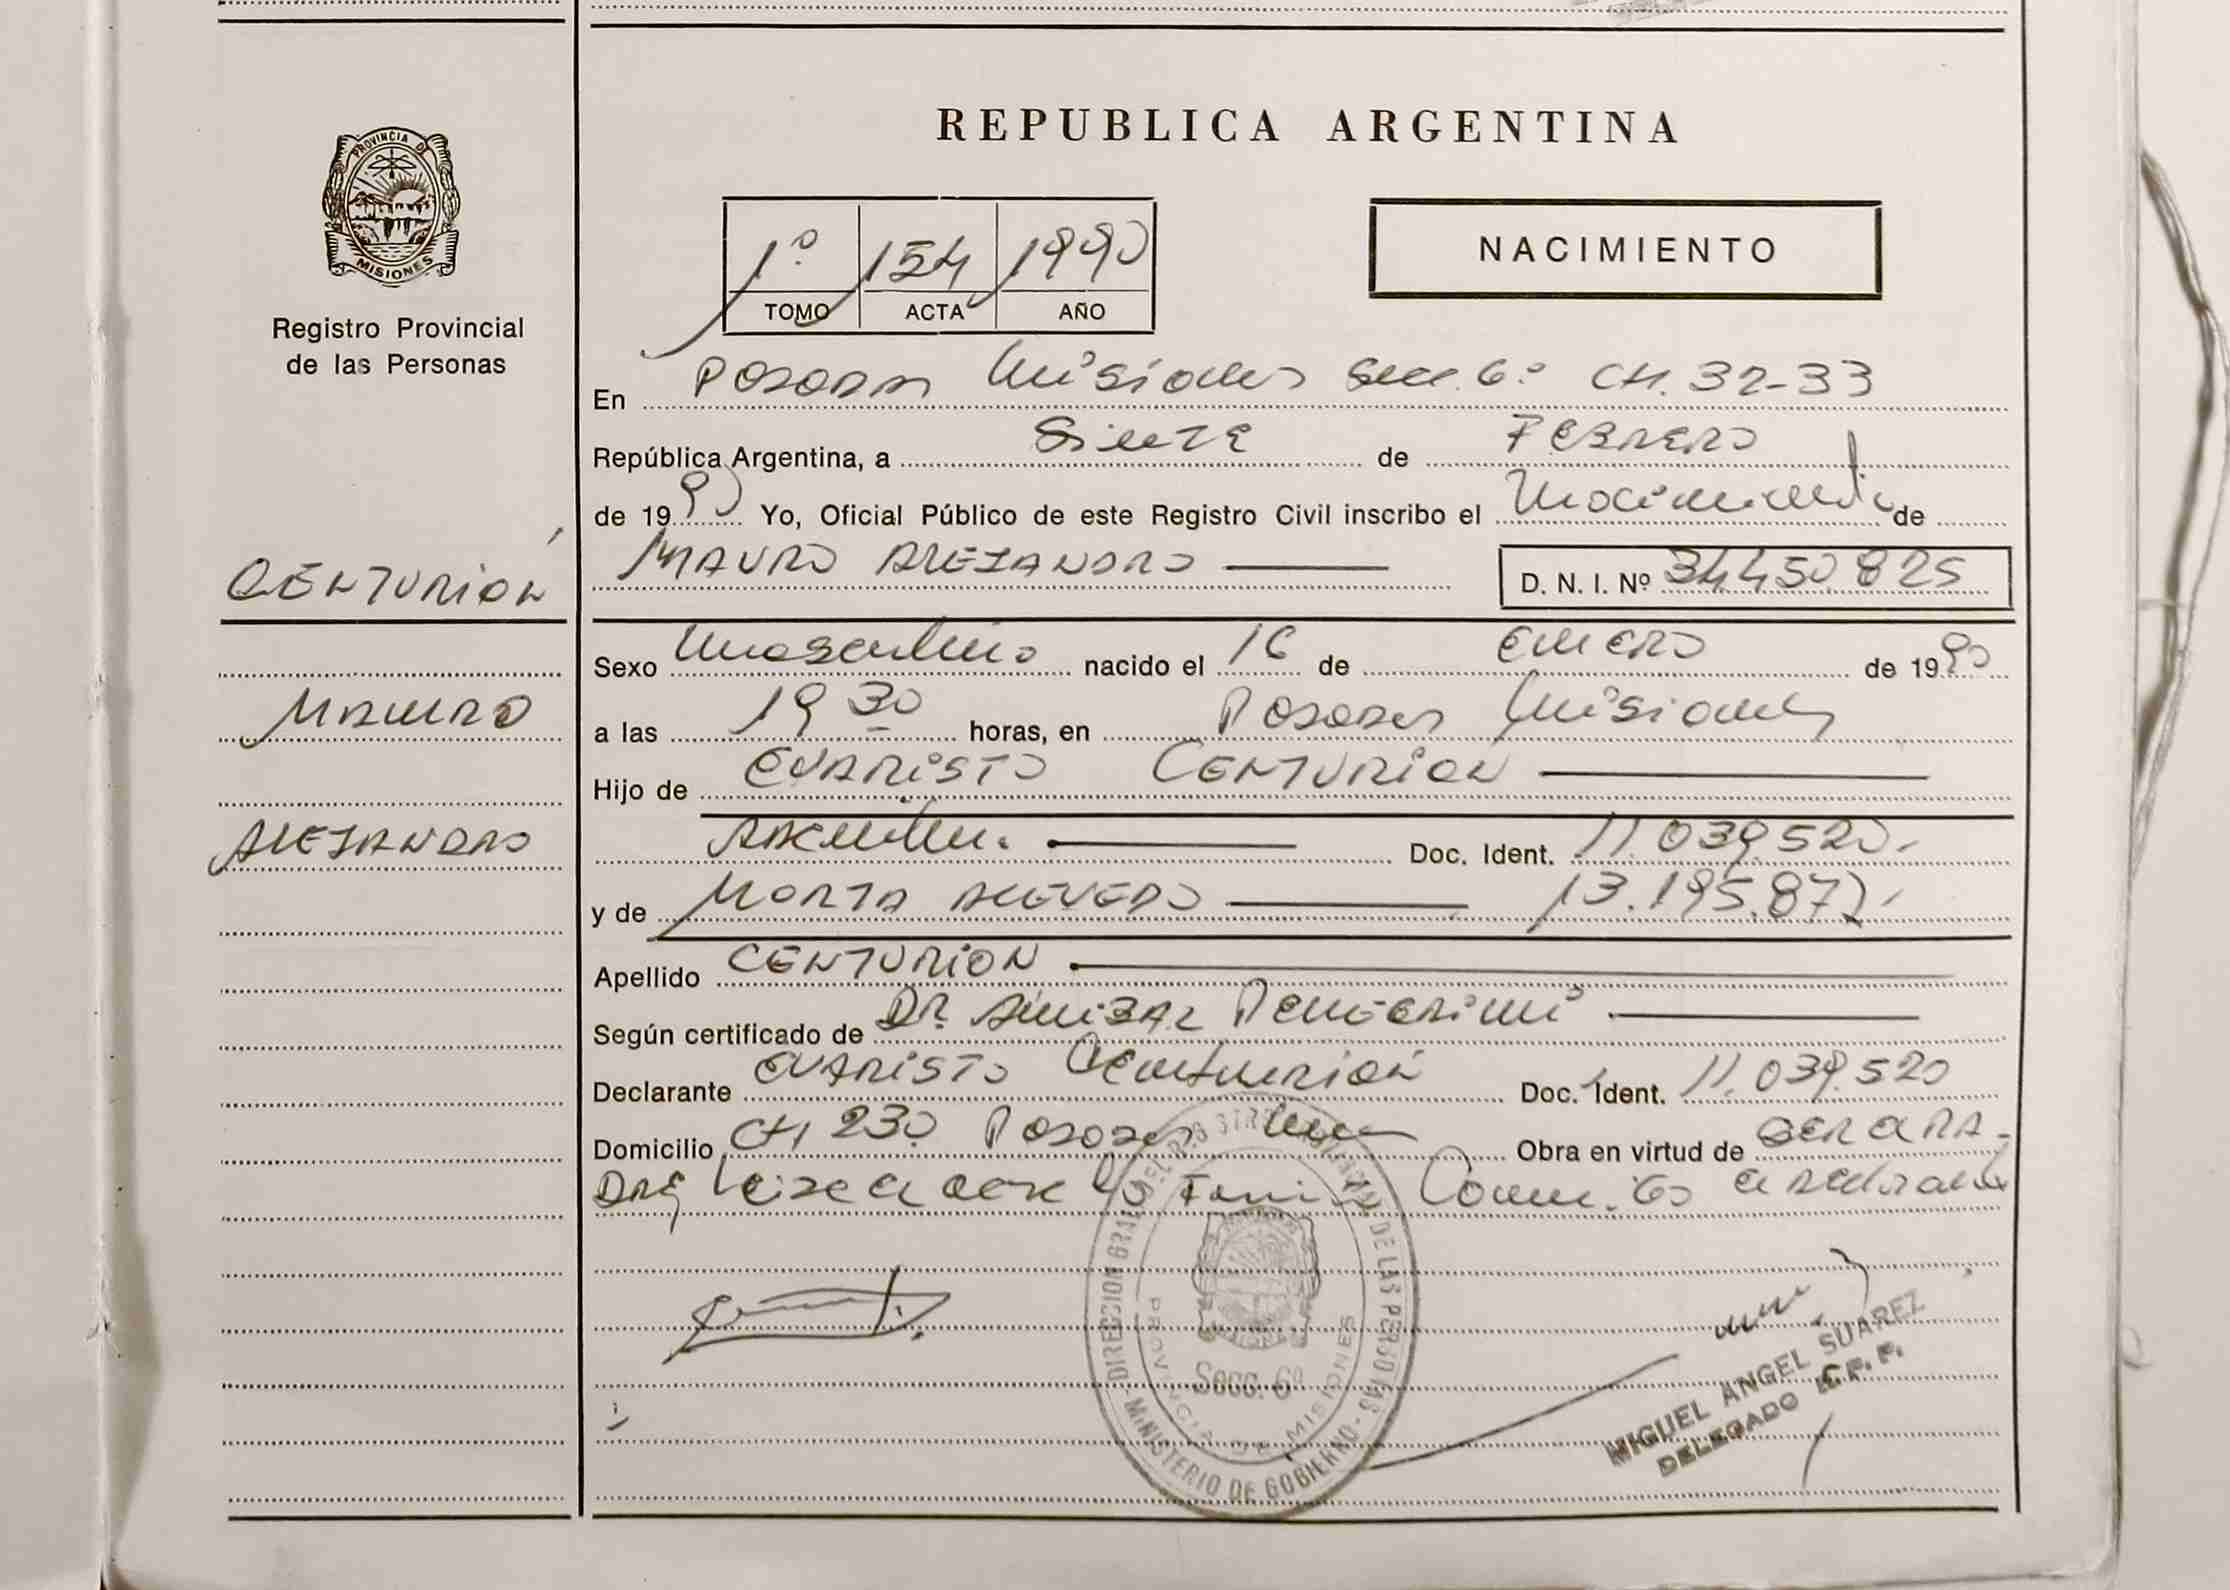 PROVINCIA DE
MISIONES
Registro Provincial
de las Personas
CENTURION
MAURO
ALEJANDRO
REPUBLICA ARGENTINA
1º 154 1990
TOMO ACTA AÑO
NACIMIENTO
En Posadas Misiones Secc. 6º CH. 32-33
República Argentina, a Siete de FEBRERO
de 1990 Yo, Oficial Público de este Registro Civil inscribo el Nacimiento de
MAURO ALEJANDRO D. N. I. Nº 34.450.825
Sexo Masculino nacido el 16 de ENERO de 1990
a las 19 30 horas, en Posadas Misiones
Hijo de EVARISTO CENTURION
Doc. Ident. 11.039.520.-
y de MARTA ACEVEDO 13.195.872.-
Apellido CENTURION
Según certificado de DR. ANIBAL
Declarante EVARISTO Centurión Doc. Ident. 11.039.520
Domicilio CH 230 Posadas Mnes Obra en virtud de
DIRECCION GRAL. DEL REGISTRO PROVINCIAL DE LAS PERSONAS - MINISTERIO DE GOBIERNO -
PROVINCIA DE MISIONES
Secc. 6ª
MIGUEL ANGEL SUAREZ
DELEGADO